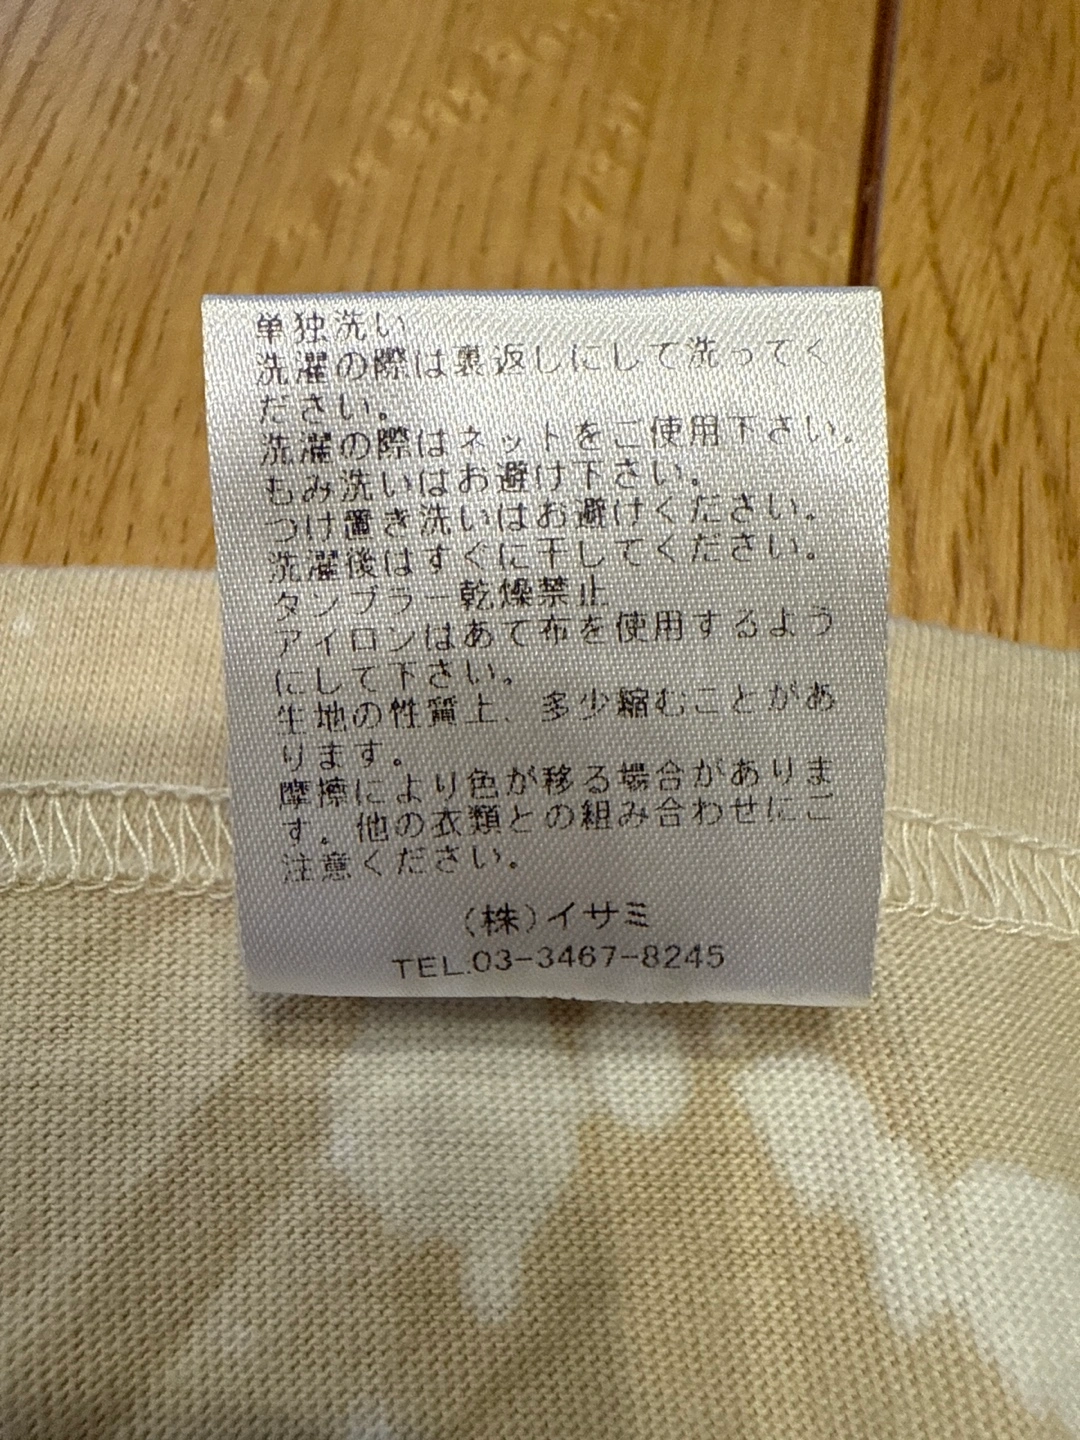 単独洗い
洗濯の際は裏返しにして洗ってく
ださい。
洗濯の際はネットをご使用下さい。
もみ洗いはお避け下さい。
つけ置き洗いはお避けください。
洗濯後はすぐに干してください。
タンブラー乾燥禁止
アイロンはあて布を使用するよう
にして下さい。
生地の性質上、多少縮むことがあ
ります。
摩擦により色が移る場合がありま
す。他の衣類との組み合わせにご
注意ください。
(株)イサミ
TEL.03-3467-8245